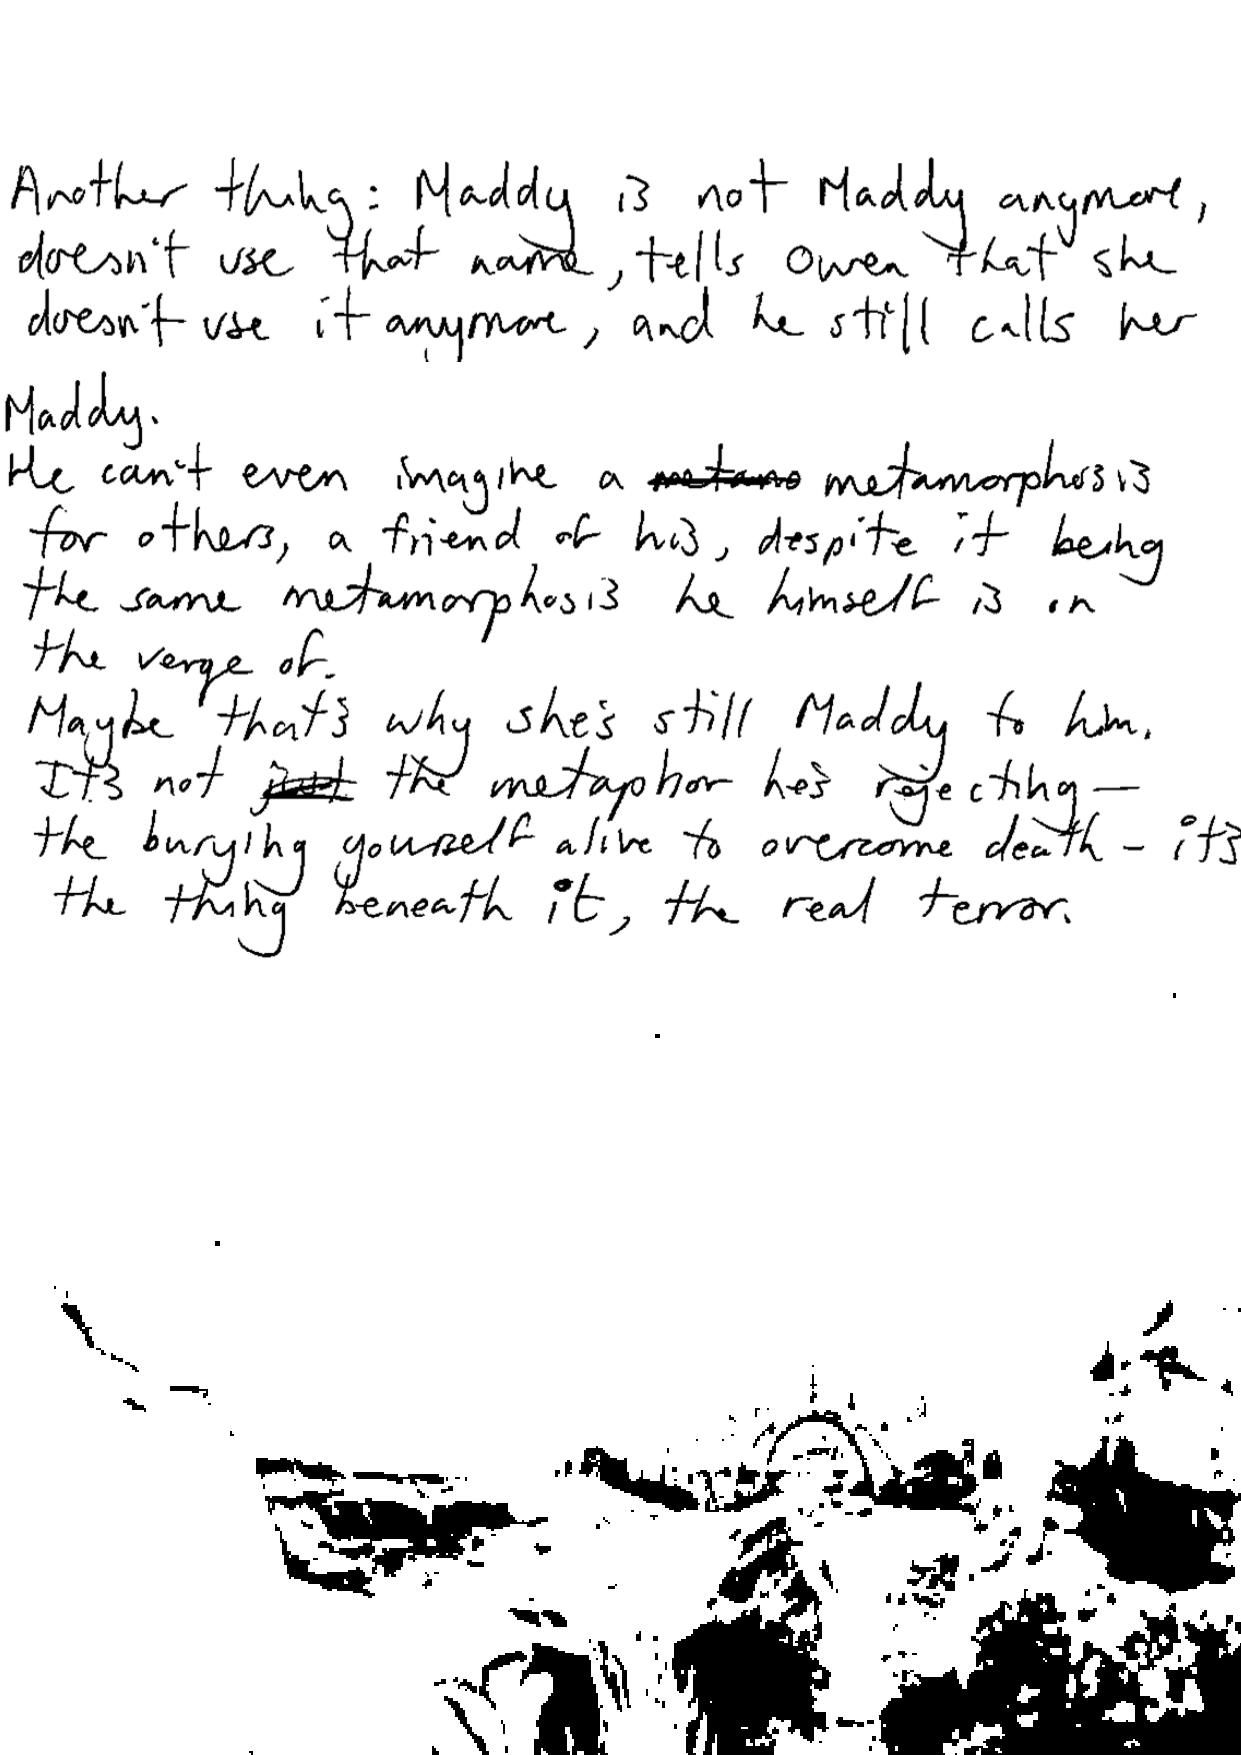 Another thing: Maddy is not Maddy anymore,
doesn't use that name, tells Owen that she
doesn't use it anymore, and he still calls her
Maddy.
He can't even imagine a metamorphosis
for others, a friend of his, despite it being
the same metamorphosis he himself is on
the verge of.
Maybe that's why she's still Maddy to him.
It's not the metaphor he's rejecting—
the burying yourself alive to overcome death - it's
the thing beneath it, the real terror.